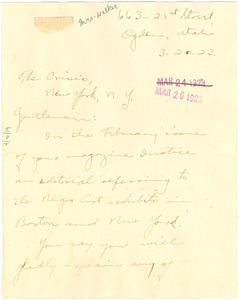 Mrs. Walker
663-21st Street
Ogden, Utah
3.20.23.
MAR 24 1923
MAR 26 1923
The Crisis,
New York, N.Y.
Gentlemen:
In the February issue
of your magazine I notice
an editorial referring to
the Negro Art exhibits in
Boston and New York.
You say you will
gladly explain any of